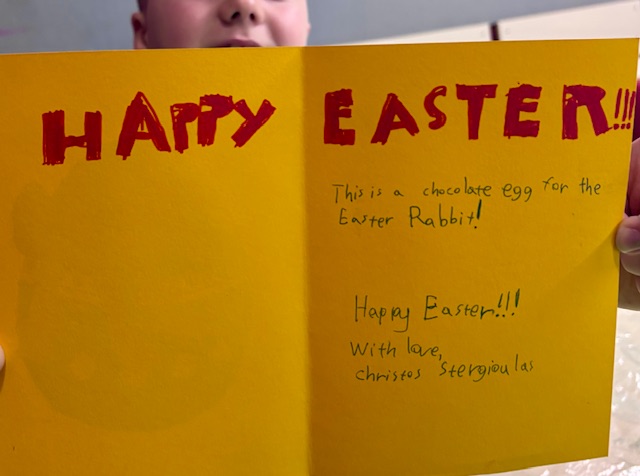 HAPPY EASTER!!!
This is a chocolate egg for the
Easter Rabbit!
Happy Easter!!!
With love,
christos Stergioulas